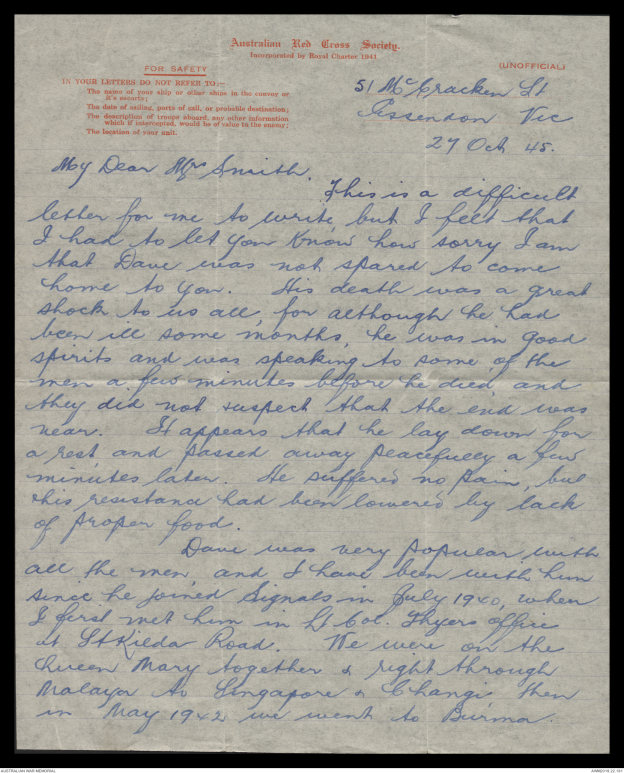 Australian Red Cross Society.
Incorporated by Royal Charter 1941
FOR SAFETY
(UNOFFICIAL)
IN YOUR LETTERS DO NOT REFER TO:—
The name of your ship or other ships in the convoy or
it's escorts;
The date of sailing, ports of call, or probable destination;
The description of troops aboard, any other information
which if intercepted, would be of value to the enemy;
The location of your unit.
51 McCracken St
Essendon Vic
27 Oct 45.
My Dear Mrs Smith.
This is a difficult
letter for me to write but I felt that
I had to let you know how sorry I am
that Dave was not spared to come
home to you. His death was a great
shock to us all, for although he had
been ill some months, he was in good
spirits and was speaking to some of the
men a few minutes before he died and
they did not suspect that the end was
near. It appears that he lay down for
a rest and passed away peacefully a few
minutes later. He suffered no pain, but
his resistand had been lowered by lack
of proper food.
Dave was very popular with
all the men, and I have been with him
since he joined Signals in July 1940, when
I first met him in Lt Col. Thyers office
at St Kilda Road. We were on the
Queen Mary together & right through
Malaya to Singapore & Changi then
in May 1942 we went to Burma.
AUSTRALIAN WAR MEMORIAL